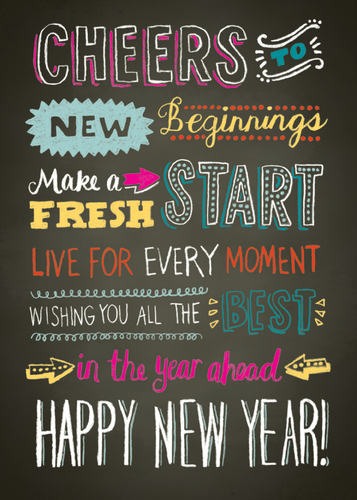 CHEERS TO
NEW Beginnings
Make a
FRESH START
LIVE FOR EVERY MOMENT
WISHING YOU ALL THE BEST
in the year ahead
HAPPY NEW YEAR!